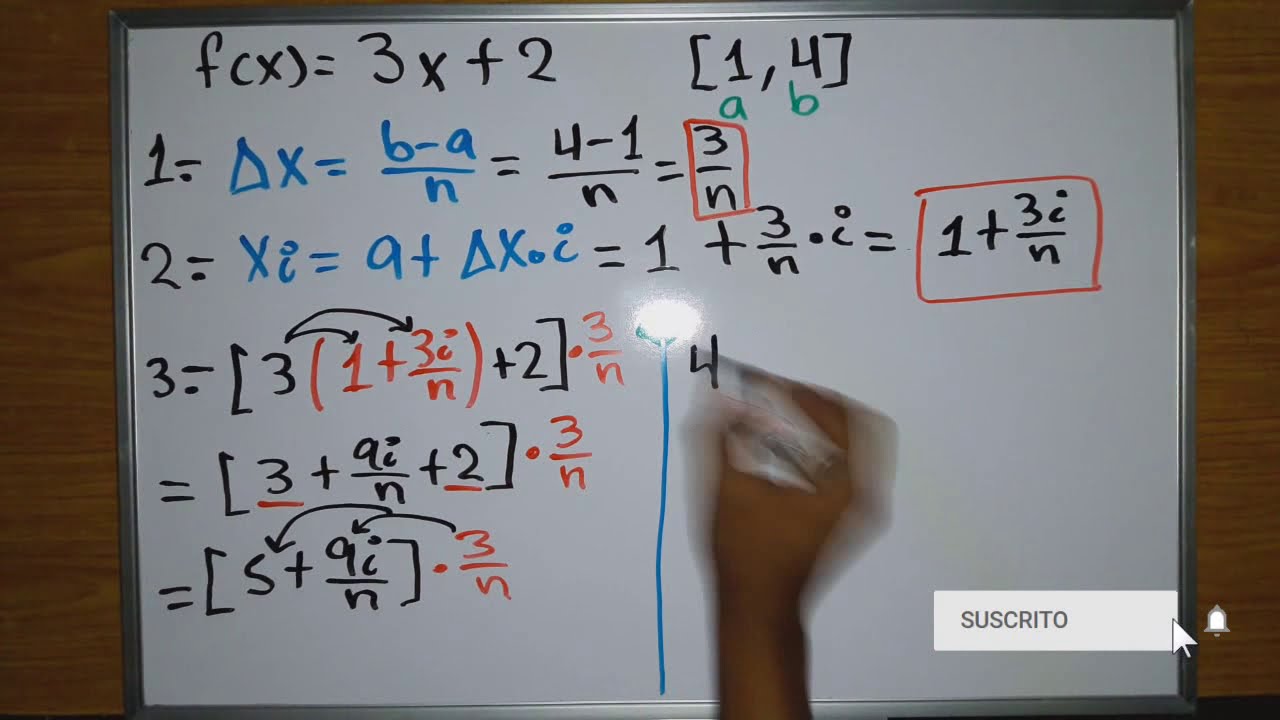 f(x)= 3x+2 [1,4]
a b
1= Δx= b-a/n = 4-1/n = 3/n
2= xi= a+ Δx·i = 1 + 3/n·i = 1+3i/n
3= [3(1+3i/n)+2]·3/n
= [3 + 9i/n +2]·3/n
= [5+9i/n]·3/n
4
SUSCRITO